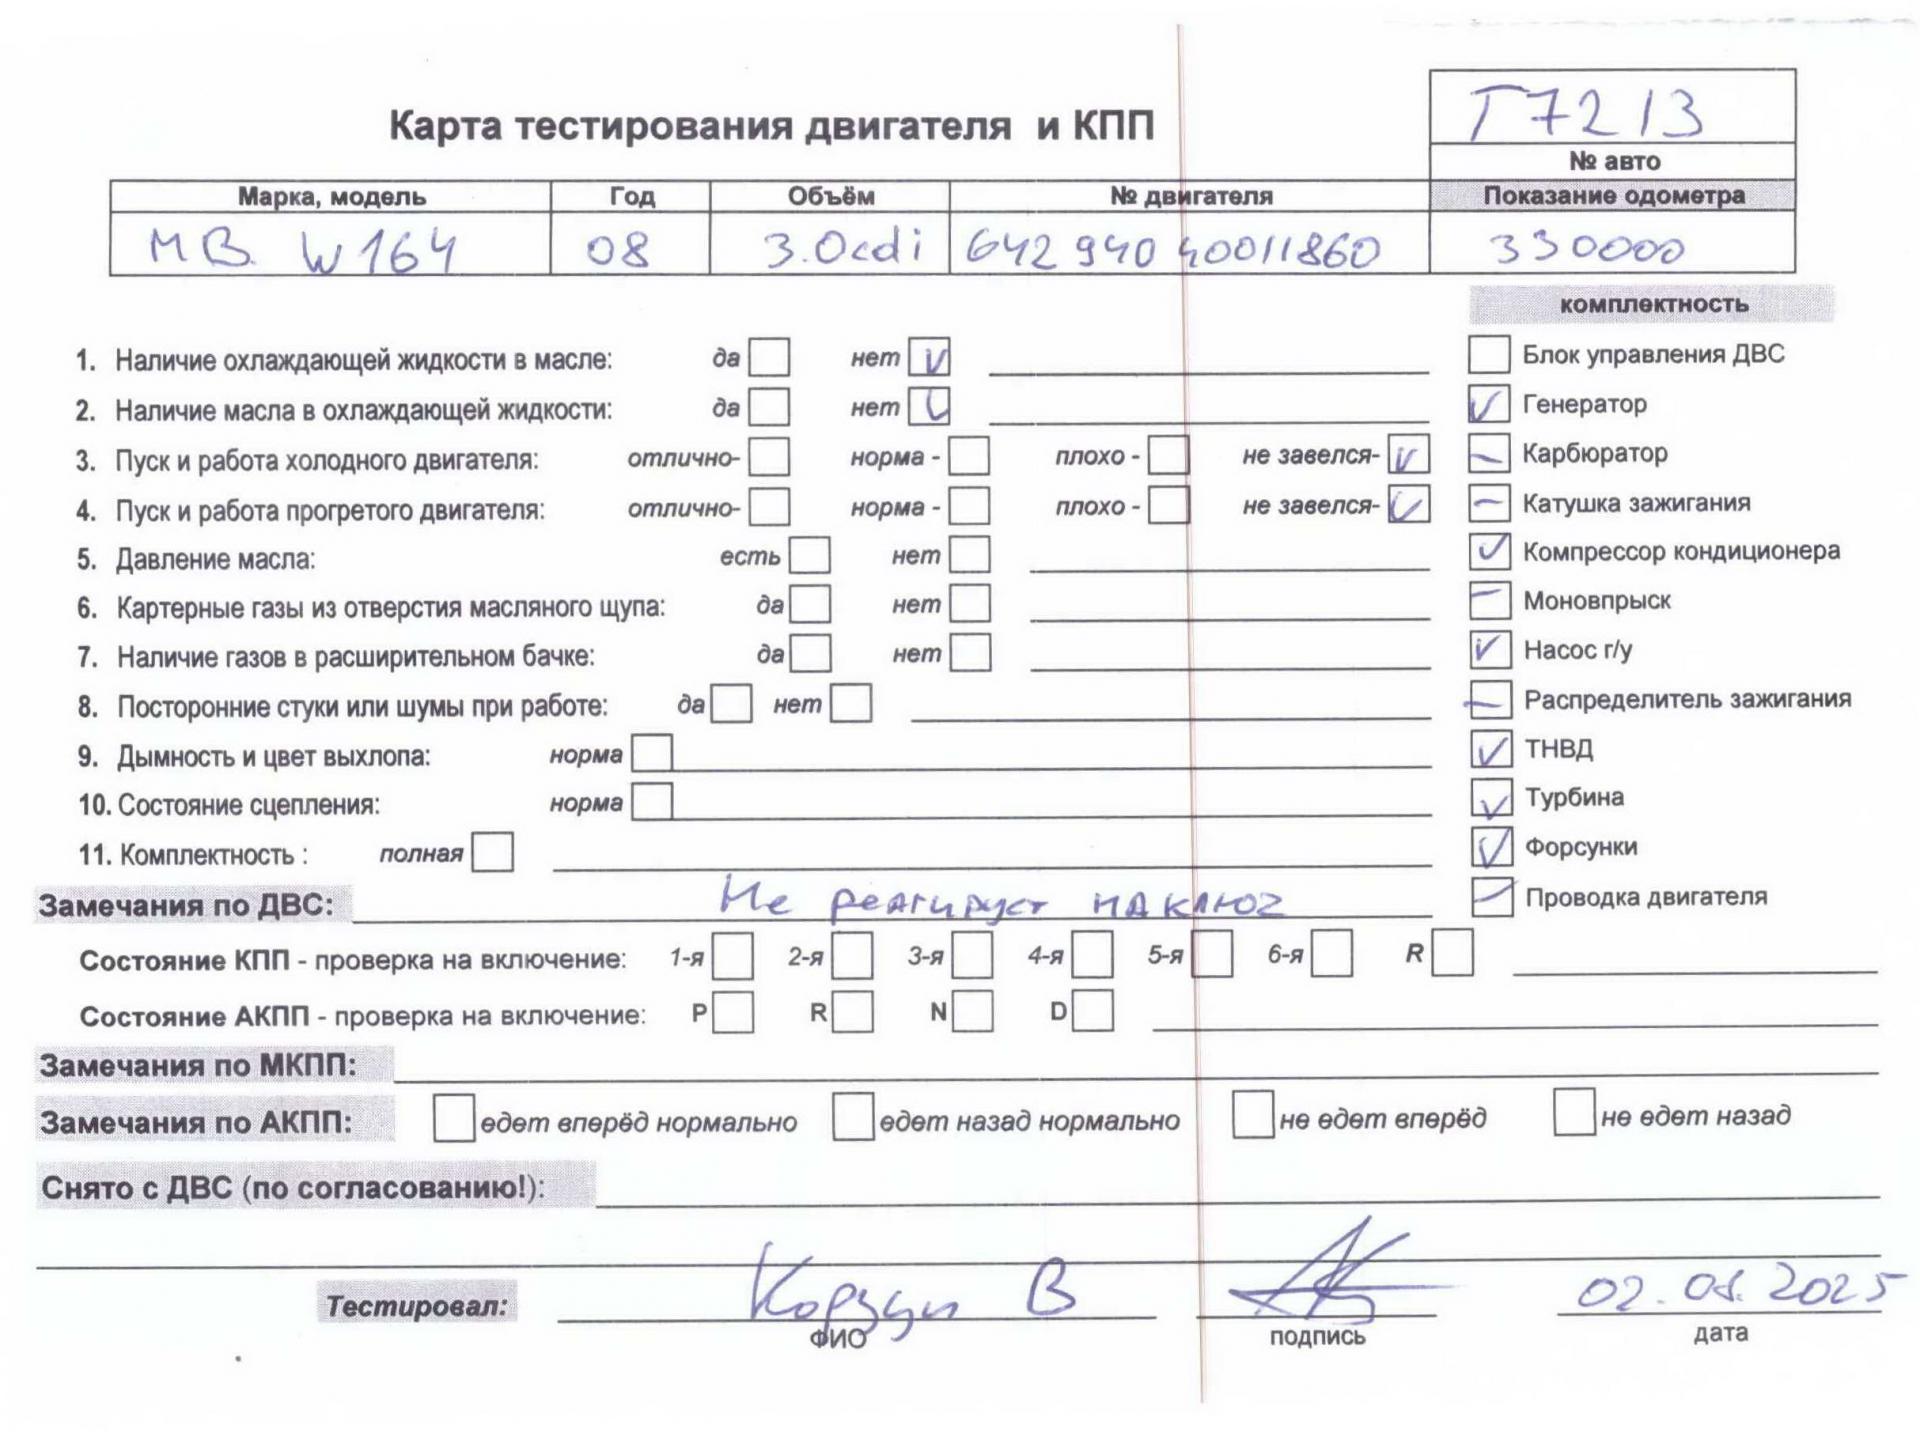 Т7213
Карта тестирования двигателя и КПП
№ авто
Марка, модель Год Объём № двигателя Показание одометра
MB W164 08 3.0cdi 642 940 40011860 330000
комплектность
1. Наличие охлаждающей жидкости в масле: да нет V Блок управления ДВС
2. Наличие масла в охлаждающей жидкости: да нет V Генератор
3. Пуск и работа холодного двигателя: отлично- норма - плохо - не завелся- V Карбюратор
4. Пуск и работа прогретого двигателя: отлично- норма - плохо - не завелся- V Катушка зажигания
5. Давление масла: есть нет Компрессор кондиционера
6. Картерные газы из отверстия масляного щупа: да нет Моновпрыск
7. Наличие газов в расширительном бачке: да нет Насос г/у
8. Посторонние стуки или шумы при работе: да нет Распределитель зажигания
9. Дымность и цвет выхлопа: норма ТНВД
10. Состояние сцепления: норма Турбина
11. Комплектность : полная Форсунки
Замечания по ДВС: Не реагирует на ключ Проводка двигателя
Состояние КПП - проверка на включение: 1-я 2-я 3-я 4-я 5-я 6-я R
Состояние АКПП - проверка на включение: P R N D
Замечания по МКПП:
Замечания по АКПП: едет вперёд нормально едет назад нормально не едет вперёд не едет назад
Снято с ДВС (по согласованию!):
Тестировал: В 2025
ФИО подпись дата